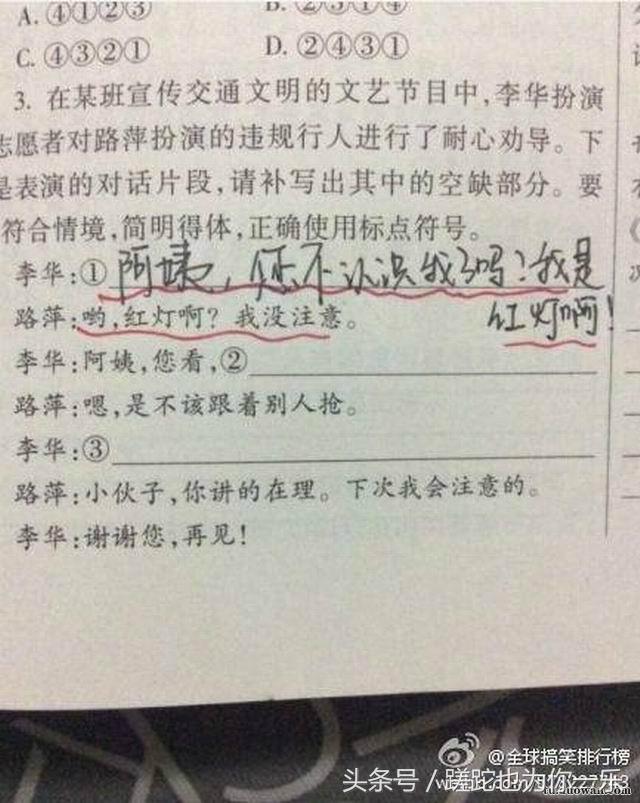 A. ④①②③
B. ②③①④
C. ④③②①
D. ②④③①
3. 在某班宣传交通文明的文艺节目中,李华扮演
志愿者对路萍扮演的违规行人进行了耐心劝导。下
是表演的对话片段,请补写出其中的空缺部分。要
符合情境,简明得体,正确使用标点符号。
李华:①阿姨,您不认识我了吗?我是
红灯啊!
路萍:哟,红灯啊?我没注意。
李华:阿姨,您看,②
路萍:嗯,是不该跟着别人抢。
李华:③
路萍:小伙子,你讲的在理。下次我会注意的。
李华:谢谢您,再见!
@全球搞笑排行榜
头条号/蹉跎也为你一乐